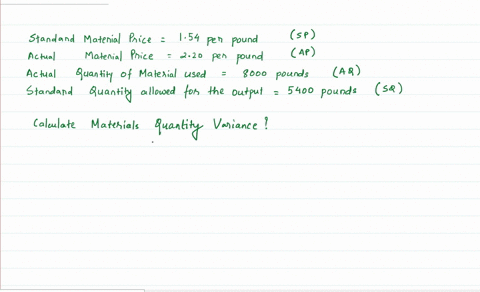 Standard Material Price = 1.54 per pound (SP)
Actual Material Price = 2.20 per pound (AP)
Actual Quantity of Material used = 8000 pounds (AQ)
Standard Quantity allowed for the output = 5400 pounds (SQ)
Calculate Materials Quantity Variance ?